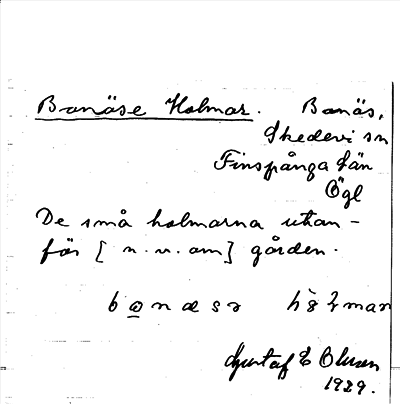 Banäse Holmar. Banäs,
Skedevi sn
Finspånga län
Ögl
De små holmarna utan-
för [n.v.om] gården.
Gustaf E Olsson
1929.